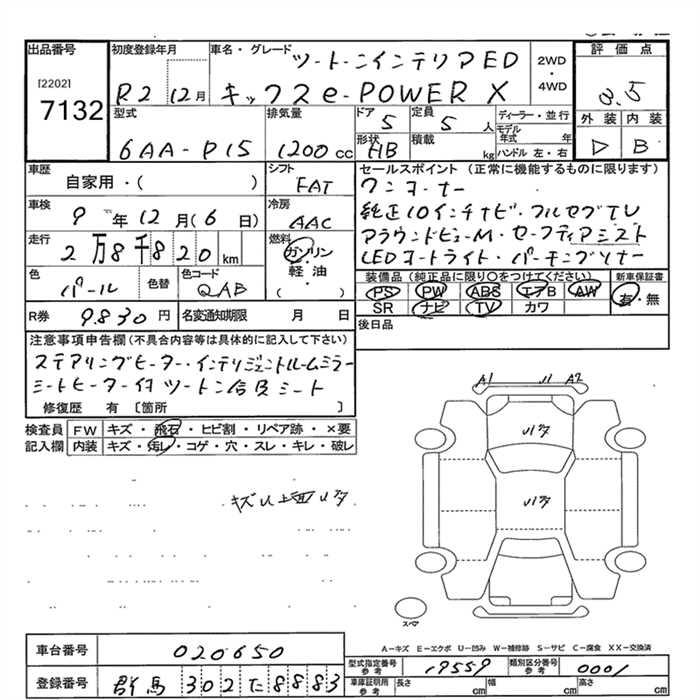 出品番号 初度登録年月 車名・グレード ツートーンインテリアED 2WD・4WD 評価点
[2202] 7132 R2 12月 キックスe-POWER X 3.5
型式 排気量 ドア 5 定員 5人 ディーラー・並行 外装 内装
6AA-P15 1200cc 形状 HB 積載 kg モデル年式 年 ハンドル 左・右 B
車歴 自家用・( ) シフト FAT セールスポイント(正常に機能するものに限ります)
ワンオーナー
車検 9年12月(6日) 冷房 AAC 純正10インチナビ・フルセグTV
走行 2万8千820km 燃料 ガソリン・軽油( ) アラウンドビューM・セーフティアシスト
LEDヘッドライト・パーキングソナー
色 パール 色替 色コード QAB 装備品(純正品に限り○をつけてください) 新車保証書
PS PW ABS エアB AW 有・無
SR ナビ TV カワ
R券 9830円 名変通知期限 月 日 後日品
注意事項申告欄(不具合内容等は具体的に記入して下さい)
ステアリングヒーター・インテリジェントルームミラー
シートヒーター付 ツートン合皮シート
修復歴 有〔箇所 〕
検査員 FW キズ・飛石・ヒビ割・リペア跡・×要
記入欄 内装 キズ・汚レ・コゲ・穴・スレ・キレ・破レ
A1 U1 A2
キズU上面Uタ
スペア
A-キズ E-エクボ U-凹み W-補修跡 S-サビ C-腐食 XX-交換済
車台番号 020650 型式指定番号 参考 19559 類別区分番号 参考 0001
登録番号 群馬 302 た 8883 車庫証明用 参考 長さ cm 幅 cm 高さ cm